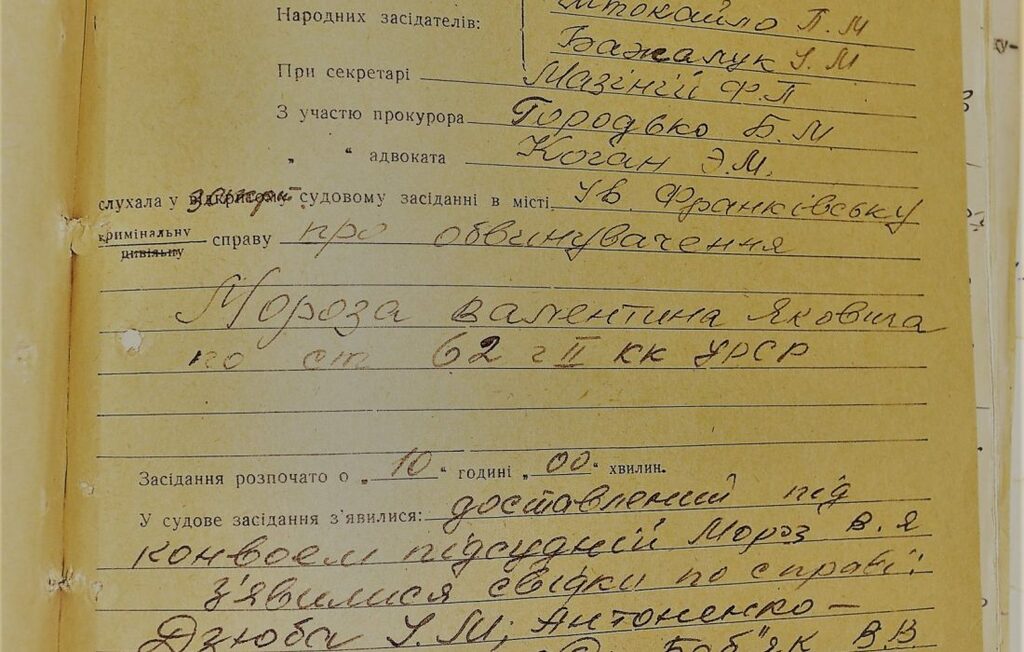 Народних засідателів: Штокайло П. М
Бажалук І. М
При секретарі Мазіній Ф. П
З участю прокурора Городько Б. М.
„ “ адвоката Коган Э. М.
слухала у відкритому закрит. судовому засіданні в місті Ів. Франківську
кримінальну
цивільну справу про обвинувачення
Мороза Валентина Яковича
по ст 62 ч II КК УРСР
Засідання розпочато о „ 10 “ годині „ 00 “ хвилин.
У судове засідання з'явилися: доставлений під
конвоєм підсудній Мороз В. Я
З'явилися свідки по справі:
Дзюба І. М; Антоненко-
Боб"як В. В